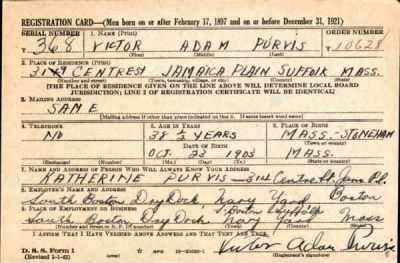 REGISTRATION CARD—(Men born on or after February 17, 1897 and on or before December 31, 1921)
SERIAL NUMBER 1. NAME (Print) ORDER NUMBER
T 368 VICTOR ADAM PURVIS 10628
(First) (Middle) (Last)
2. PLACE OF RESIDENCE (Print)
CENTRE ST JAMAICA PLAIN SUFFOLK MASS.
(Number and street) (Town, township, village, or city) (County) (State)
[THE PLACE OF RESIDENCE GIVEN ON THE LINE ABOVE WILL DETERMINE LOCAL BOARD
JURISDICTION; LINE 2 OF REGISTRATION CERTIFICATE WILL BE IDENTICAL]
3. MAILING ADDRESS
SAME
[Mailing address if other than place indicated on line 2. If same insert word same]
4. TELEPHONE 5. AGE IN YEARS 6. PLACE OF BIRTH
NO 38 YEARS MASS.-STONEHAM
DATE OF BIRTH (Town or county)
OCT. 23 1903 MASS.
(Exchange) (Number) (Mo.) (Day) (Yr.) (State or country)
7. NAME AND ADDRESS OF PERSON WHO WILL ALWAYS KNOW YOUR ADDRESS
KATHERINE PURVIS Centre St.
8. EMPLOYER'S NAME AND ADDRESS
South Boston Dry Dock, Navy Yard Boston
9. PLACE OF EMPLOYMENT OR BUSINESS
South Boston Dry Dock Navy Yard Mass
(Number and street or R. F. D. number) (Town) (County) (State)
I AFFIRM THAT I HAVE VERIFIED ABOVE ANSWERS AND THAT THEY ARE TRUE.
D. S. S. Form 1
(Revised 1-1-42) Victor Adam Purvis
(Registrant's signature)